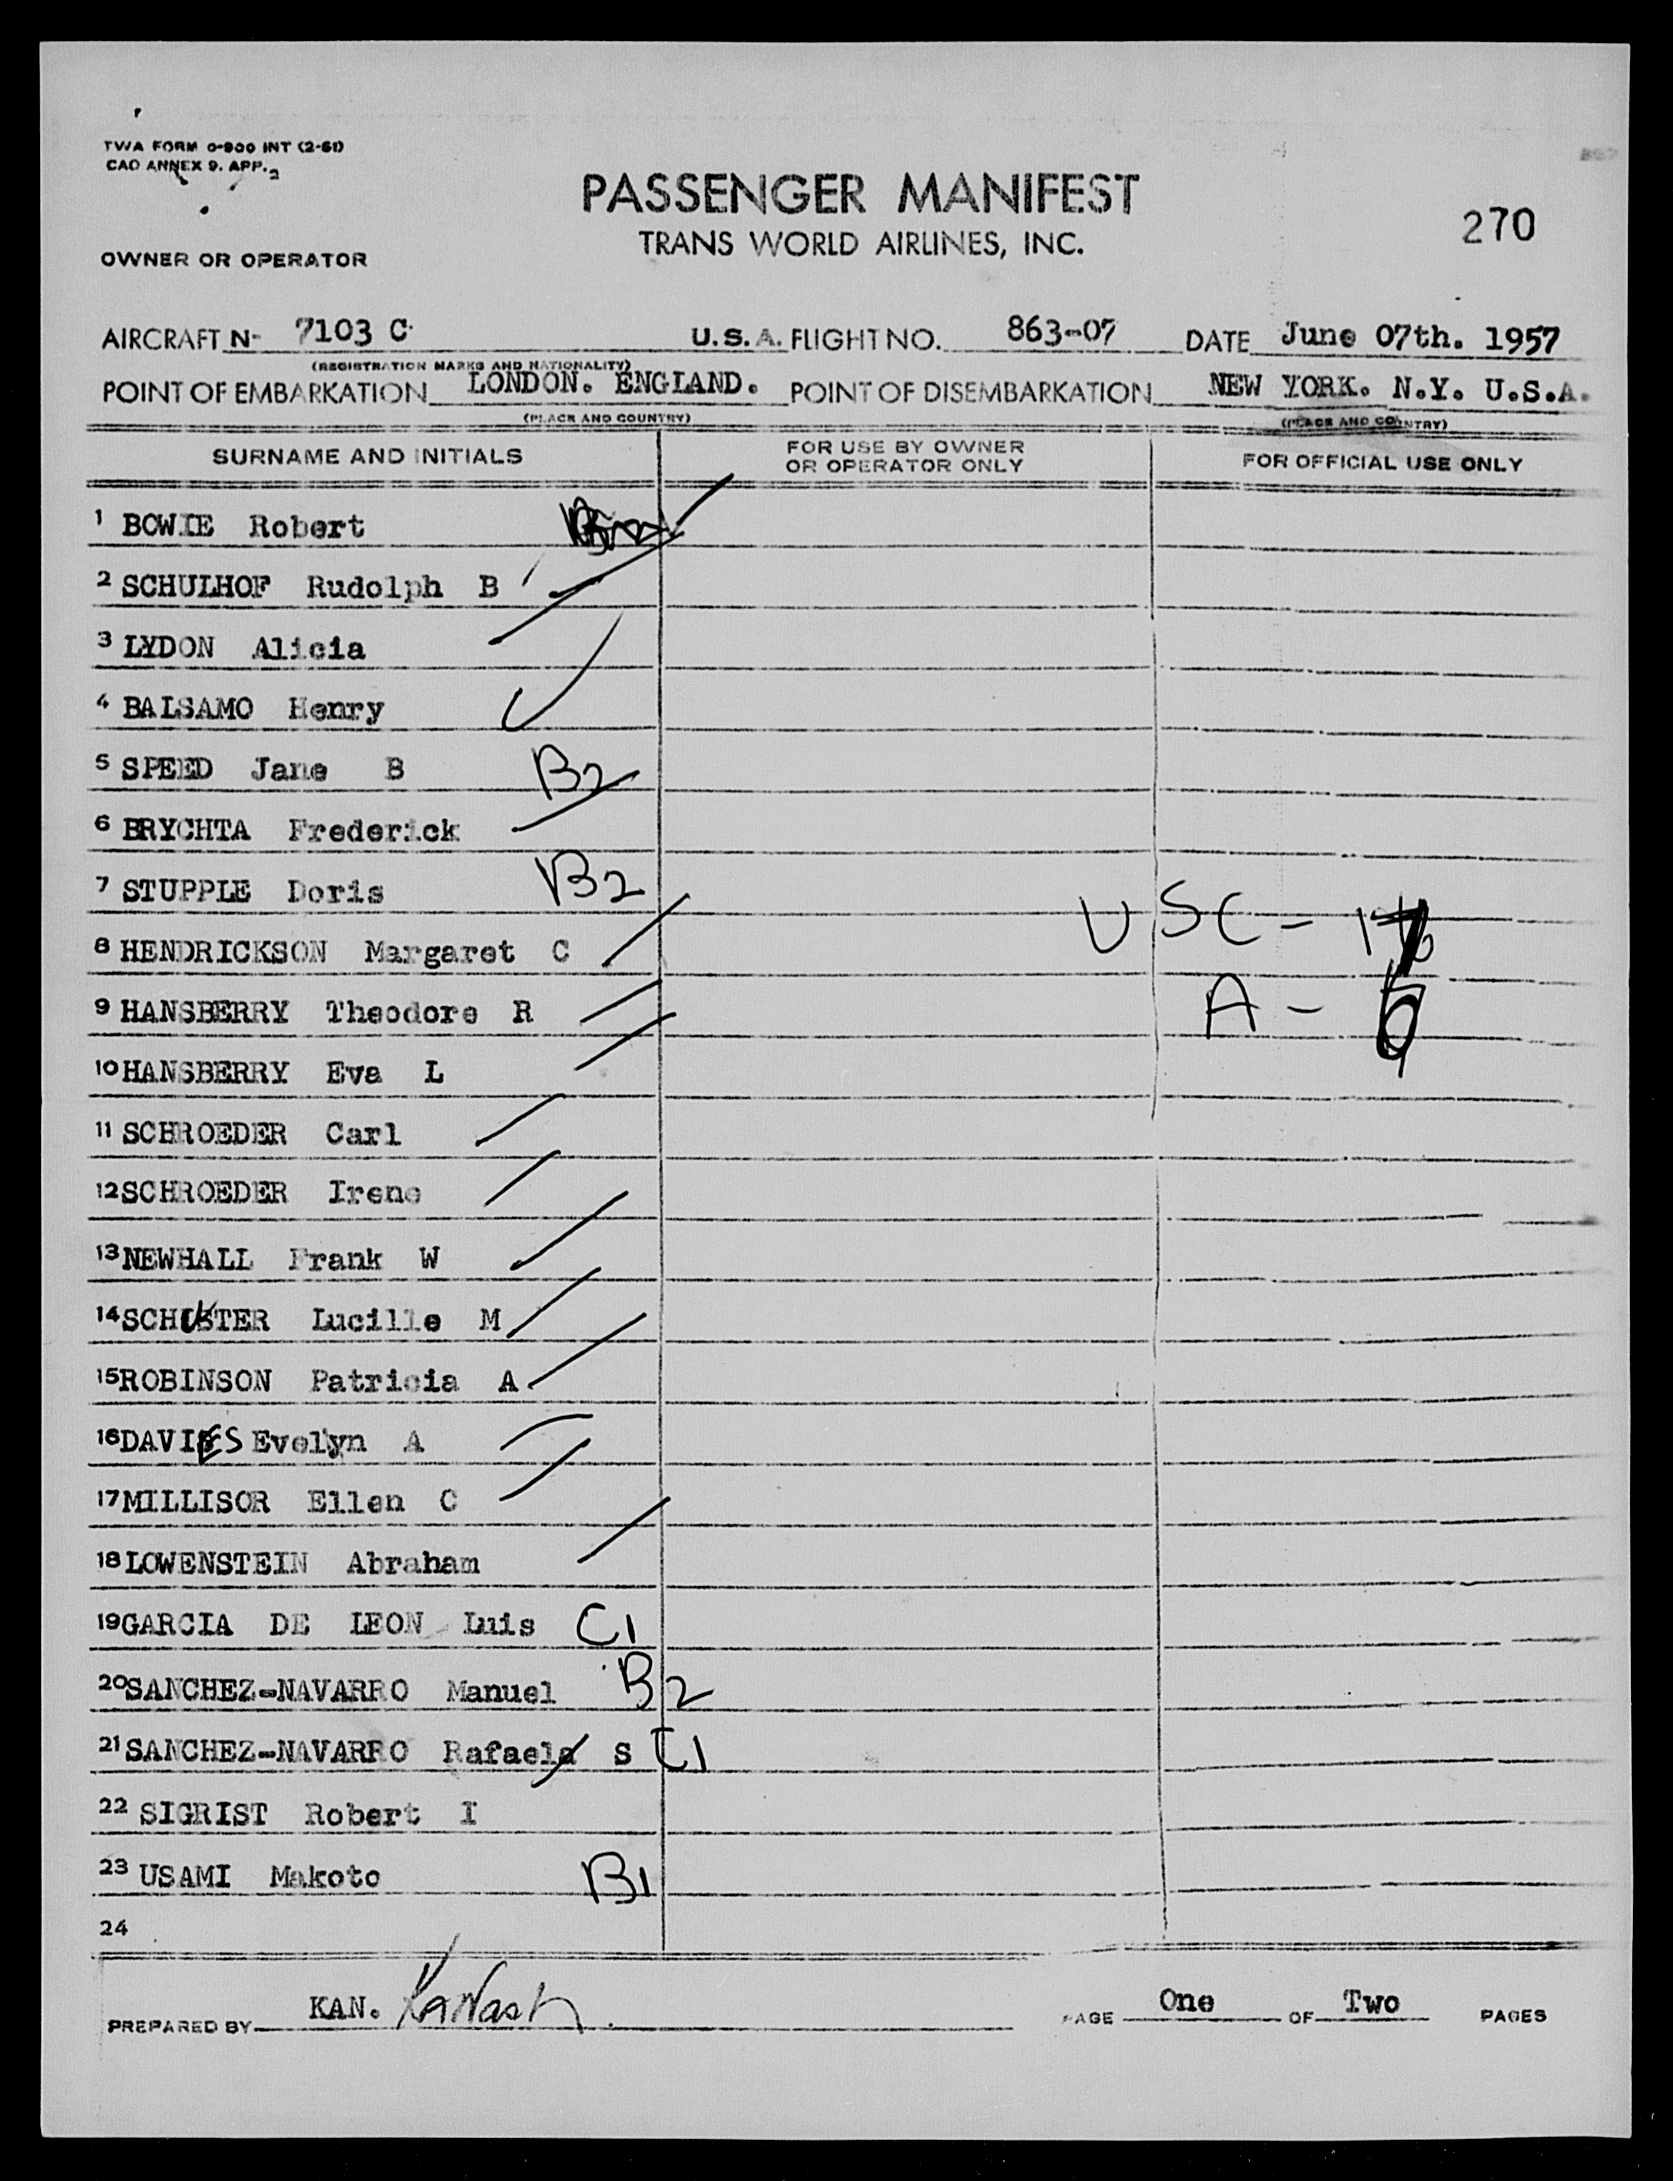 TWA FORM 0-900 INT (2-51)
CAO ANNEX 9. APP. 2
PASSENGER MANIFEST
TRANS WORLD AIRLINES, INC.
270
OWNER OR OPERATOR
AIRCRAFT N- 7103 C U.S.A. FLIGHT NO. 863-07 DATE June 07th. 1957
(REGISTRATION MARKS AND NATIONALITY)
POINT OF EMBARKATION LONDON. ENGLAND. POINT OF DISEMBARKATION NEW YORK. N.Y. U.S.A.
(PLACE AND COUNTRY) (PLACE AND COUNTRY)
SURNAME AND INITIALS FOR USE BY OWNER OR OPERATOR ONLY FOR OFFICIAL USE ONLY
1 BOWIE Robert
2 SCHULHOF Rudolph B
3 LYDON Alicia
4 BALSAMO Henry
5 SPEED Jane B B2
6 BRYCHTA Frederick
7 STUPPLE Doris B2
USC -
8 HENDRICKSON Margaret C
9 HANSBERRY Theodore R
A -
10 HANSBERRY Eva L
11 SCHROEDER Carl
12 SCHROEDER Irene
13 NEWHALL Frank W
14 SCHUSTER Lucille M
15 ROBINSON Patricia A
16 DAVIES Evelyn A
17 MILLISOR Ellen C
18 LOWENSTEIN Abraham
19 GARCIA DE LEON Luis C1
20 SANCHEZ-NAVARRO Manuel B2
21 SANCHEZ-NAVARRO Rafaela S C1
22 SIGRIST Robert I
23 USAMI Makoto B1
24
PREPARED BY KAN. PAGE One OF Two PAGES